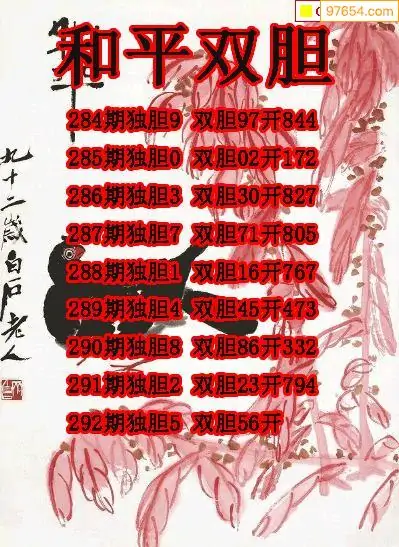 97654.com
和平双胆
284期独胆9 双胆97开844
285期独胆0 双胆02开172
286期独胆3 双胆30开827
287期独胆7 双胆71开805
288期独胆1 双胆16开767
289期独胆4 双胆45开473
290期独胆8 双胆86开332
291期独胆2 双胆23开794
292期独胆5 双胆56开
九十二歲白石老人